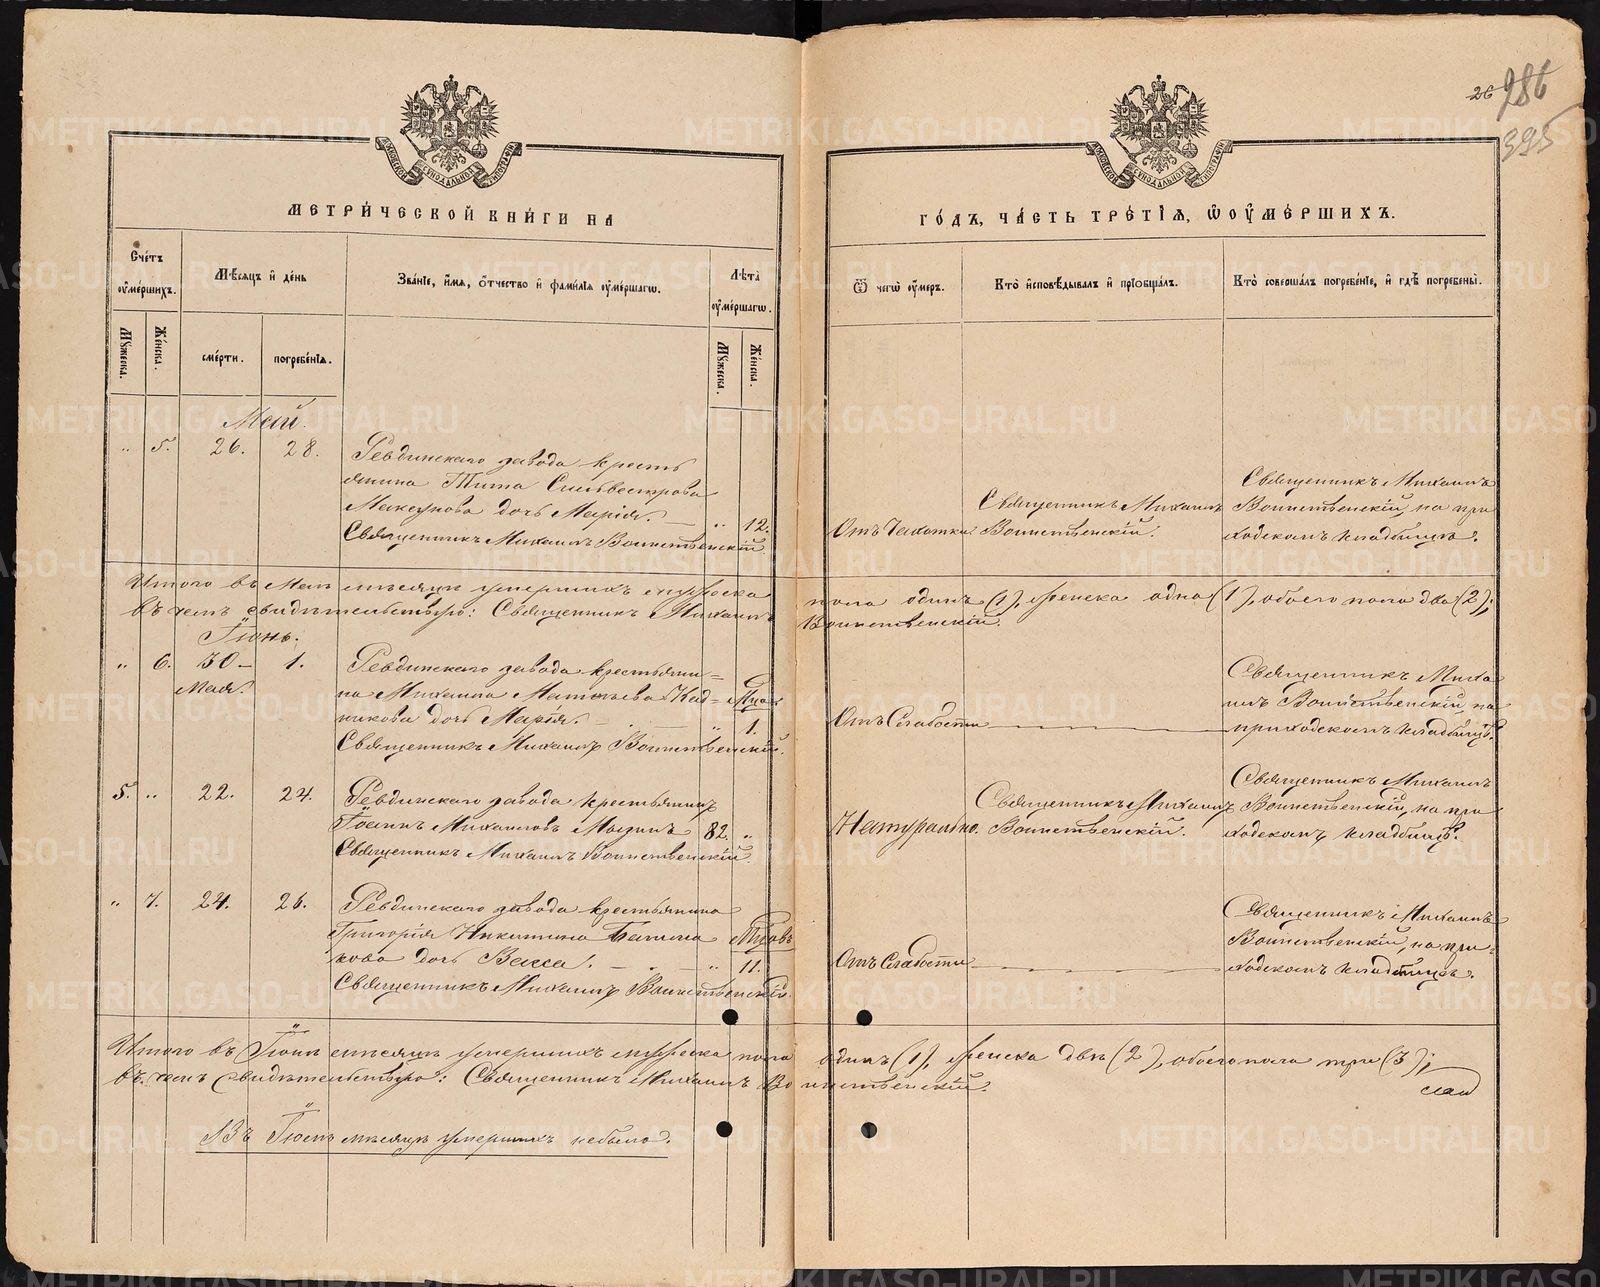 26 286
395
МЕТРИ́ЧЕСКОЙ КНИ́ГИ НА
ГО́ДЪ, ЧА́СТЬ ТРЕ́ТІѦ, Ѡ҆ ОУ҆МЕ́РШИХЪ.
Сче́тъ оу҆ме́ршихъ.
Мѣ́сѧцъ и҆ де́нь
Зва́ніе, и҆́мѧ, ѻ҆́тчество и҆ фами́лія оу҆ме́ршагѡ.
Лѣ́та оу҆ме́ршагѡ.
Ѿ чегѡ̀ оу҆́меръ.
Кто̀ и҆сповѣ́дывалъ и҆ пріѡбща́лъ.
Кто̀ соверша́лъ погребе́ніе, и҆ гдѣ̀ погребены̀.
Мꙋ́жеска.
Же́нска.
сме́рти.
погребе́нія.
Мꙋ́жеска.
Же́нска.
Май.
„ 5. 26. 28. Ревдинскаго завода кресть
янина Тита Сильвестрова
Макеунова дочь Марія. — „ 12.
Священникъ Михаилъ Воинственскій
Отъ Чахотки
Священникъ Михаилъ
Воинственскій.
Священникъ Михаилъ
Воинственскій, на при
ходскомъ кладбищѣ.
Итого въ Маѣ мѣсяцѣ умершихъ мужеска пола одинъ (1), женска одна (1), обоего пола два (2);
въ чемъ свидѣтельствую: Священникъ Михаилъ Воинственскій.
Іюнь.
„ 6. 30— 1. Ревдинскаго завода крестьяни=
мая. на Михаила Матвѣева Кад= Мца
никова дочь Марія. — „ 1.
Священникъ Михаилъ Воинственскій.
Отъ Слабости
Священникъ Миха
илъ Воинственскій, на
приходскомъ кладбищѣ.
5. „ 22. 24. Ревдинскаго завода крестьянинъ
Іоаннъ Михаиловъ Мызинъ 82. „
Священникъ Михаилъ Воинственскій.
Натурально.
Священникъ Михаилъ
Воинственскій.
Священникъ Михаилъ
Воинственскій, на при
ходскомъ кладбищѣ.
„ 7. 24. 26. Ревдинскаго завода крестьянина
Григорія Никитина Балма Мцовъ
кова дочь Васса. — „ 11.
Священникъ Михаилъ Воинственскій.
Отъ Слабости
Священникъ Михаилъ
Воинственскій, на при-
ходскомъ кладбищѣ.
Итого въ Іюнѣ мѣсяцѣ умершихъ мужеска пола одинъ (1), женска двѣ (2), обоего пола три (3);
въ чемъ свидѣтельствую: Священникъ Михаилъ Воинственскій.
Въ Іюлѣ мѣсяцѣ умершихъ небыло.